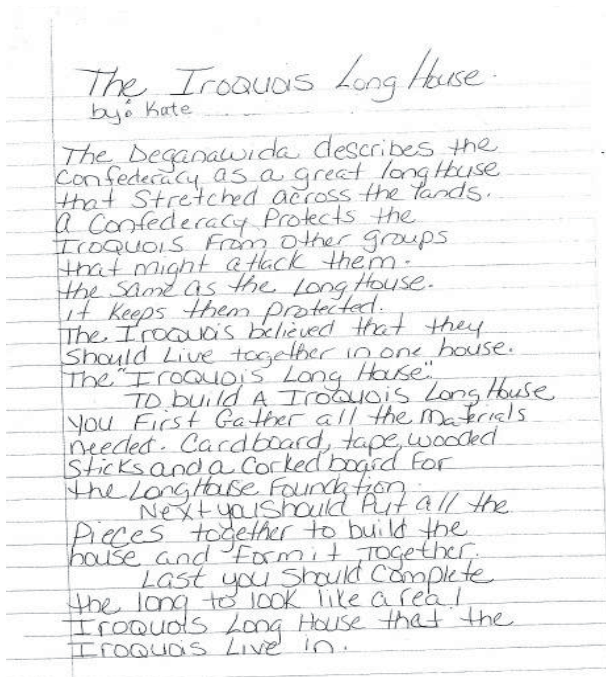 The Iroquois Long House.
by: Kate
The Deganawida describes the
Confederacy as a great longHouse
that Stretched across the lands.
a Confederacy Protects the
Iroquois From Other groups
that might attack them.
the same as the Long House.
it Keeps them protected.
The Iroquois believed that they
Should Live together in one house.
The "Iroquois Long House".
To build A Iroquois Long House
you First Gather all the Materials
needed. Cardboard, tape, wooded
Sticks and a Corked board For
the Long House Foundation.
Next you Should Put all the
Pieces together to build the
house and Form it Together.
Last you Should Complete
the long to look like a real
Iroquois Long House that the
Iroquois Live in.